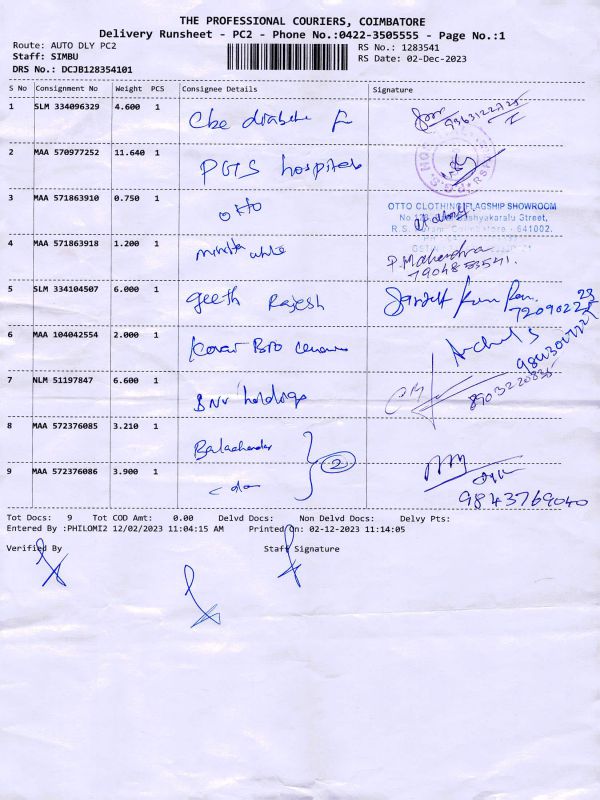 THE PROFESSIONAL COURIERS, COIMBATORE
Delivery Runsheet - PC2 - Phone No.:0422-3505555 - Page No.:1
Route: AUTO DLY PC2
RS No.: 1283541
Staff: SIMBU
RS Date: 02-Dec-2023
DRS No.: DCJB128354101
S No Consignment No Weight PCS Consignee Details Signature
1 SLM 334096329 4.600 1 Cbe diabetic F
2 MAA 570977252 11.640 1 PGTS hospitals
3 MAA 571863910 0.750 1 otto
OTTO CLOTHING FLAGSHIP SHOWROOM
Street,
R.S. Coimbatore - 641002.
4 MAA 571863918 1.200 1 white P. Mahendra
7904853541.
5 SLM 334104507 6.000 1 geeth Rajesh
6 MAA 104042554 2.000 1 Kovai
7 NLM 51197847 6.600 1 BNV holdings
8903220835
8 MAA 572376085 3.210 1 Balachander
2
9 MAA 572376086 3.900 1 - do -
9843769040
Tot Docs: 9 Tot COD Amt: 0.00 Delvd Docs: Non Delvd Docs: Delvy Pts:
Entered By :PHILOMI2 12/02/2023 11:04:15 AM Printed On: 02-12-2023 11:14:05
Verified By Staff Signature